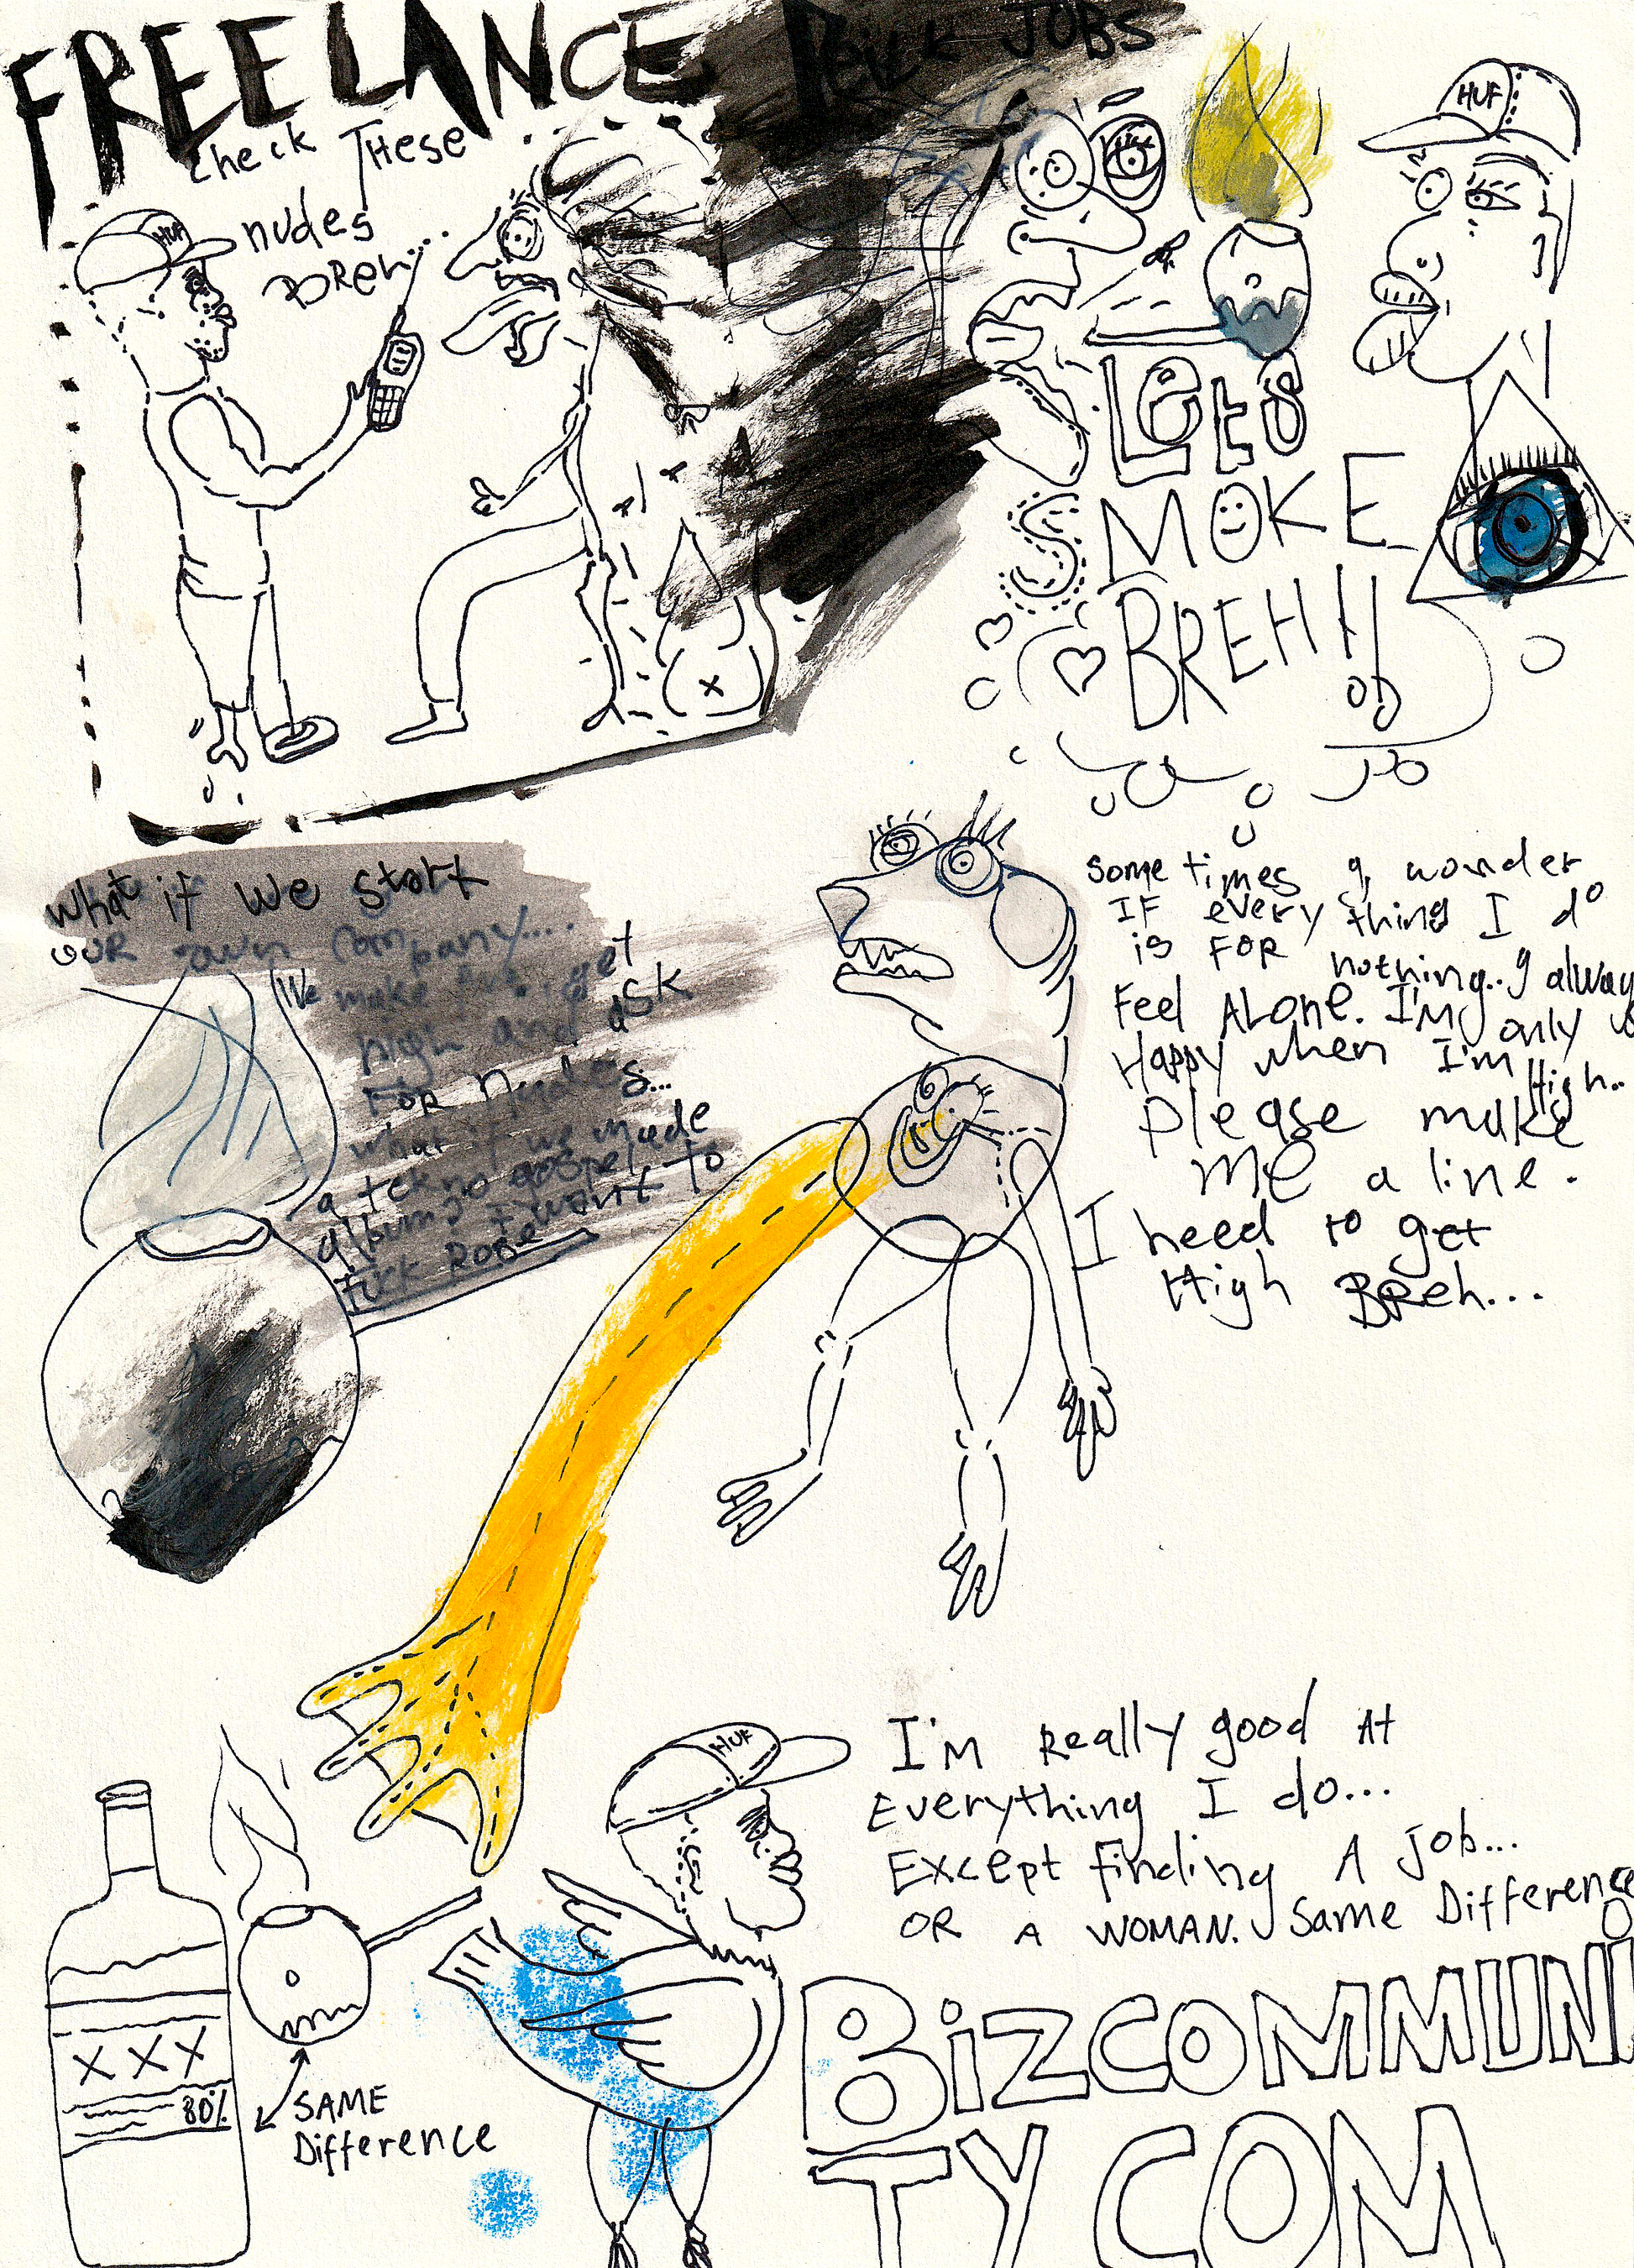 FREELANCE
JOBS
Check These
nudes
Breh..
HUF
HUF
Lets
SMOKE
BREH!!
What if we start
our own company....
We make ... get
high and ask
For Nudes...
what if we made
a tekno gospel
album? I want to
Fuck Rose
Some times I wonder
IF every thing I do
is FOR nothing.. I alway
Feel ALone. I'M only
Happy when I'm High..
Please make
Me a line.
I need to get
High Breh...
HUF
I'm Really good At
Everything I do...
Except finding A job...
OR A WOMAN. Same Difference
XXX
80%
SAME
Difference
BizCOMMUNi
TYCOM